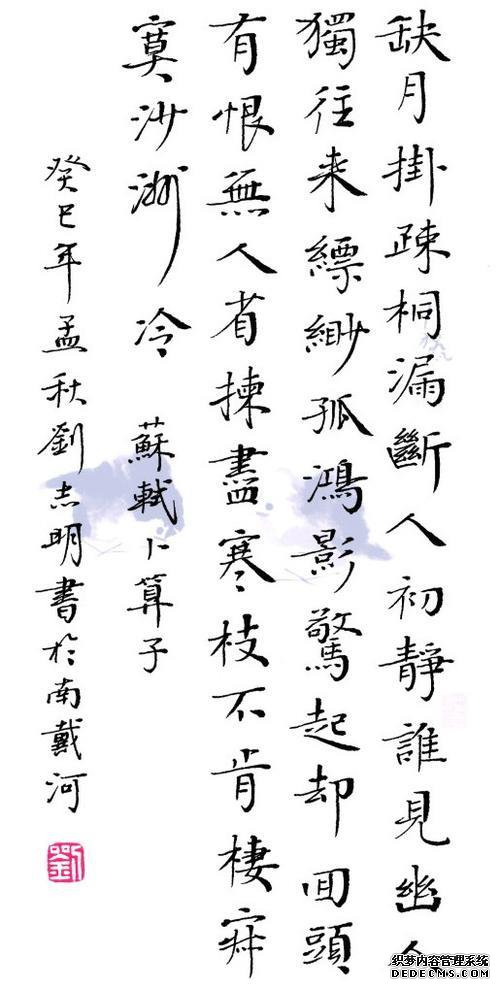 缺月掛疎桐漏斷人初靜誰見幽人
獨往来縹緲孤鴻影驚起却回頭
有恨無人省揀盡寒枝不肯棲寂
寞沙洲冷 蘇軾卜算子
癸巳年孟秋劉志明書於南戴河
劉
织梦内容管理系统
DEDECMS.COM